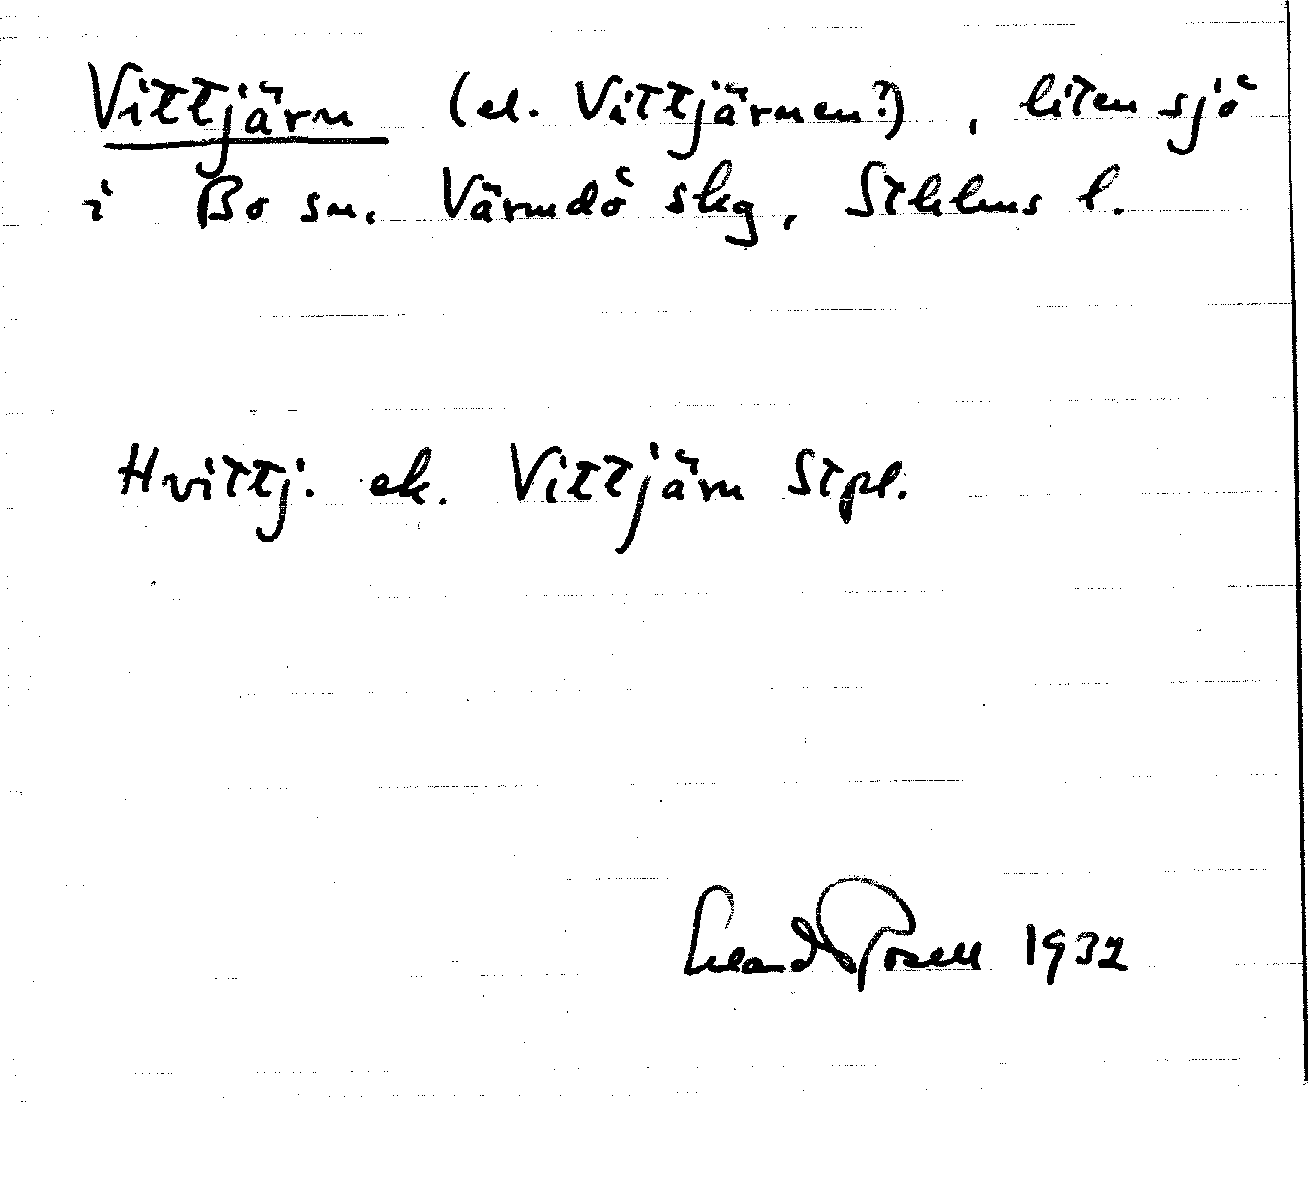 Vittjärn (el. Vittjärnen?), liten sjö
i Bo sn. Värmdö skg, Sthlms l.
Hvittj. ek. Vittjärn Stpl.
Erland Rosell 1932